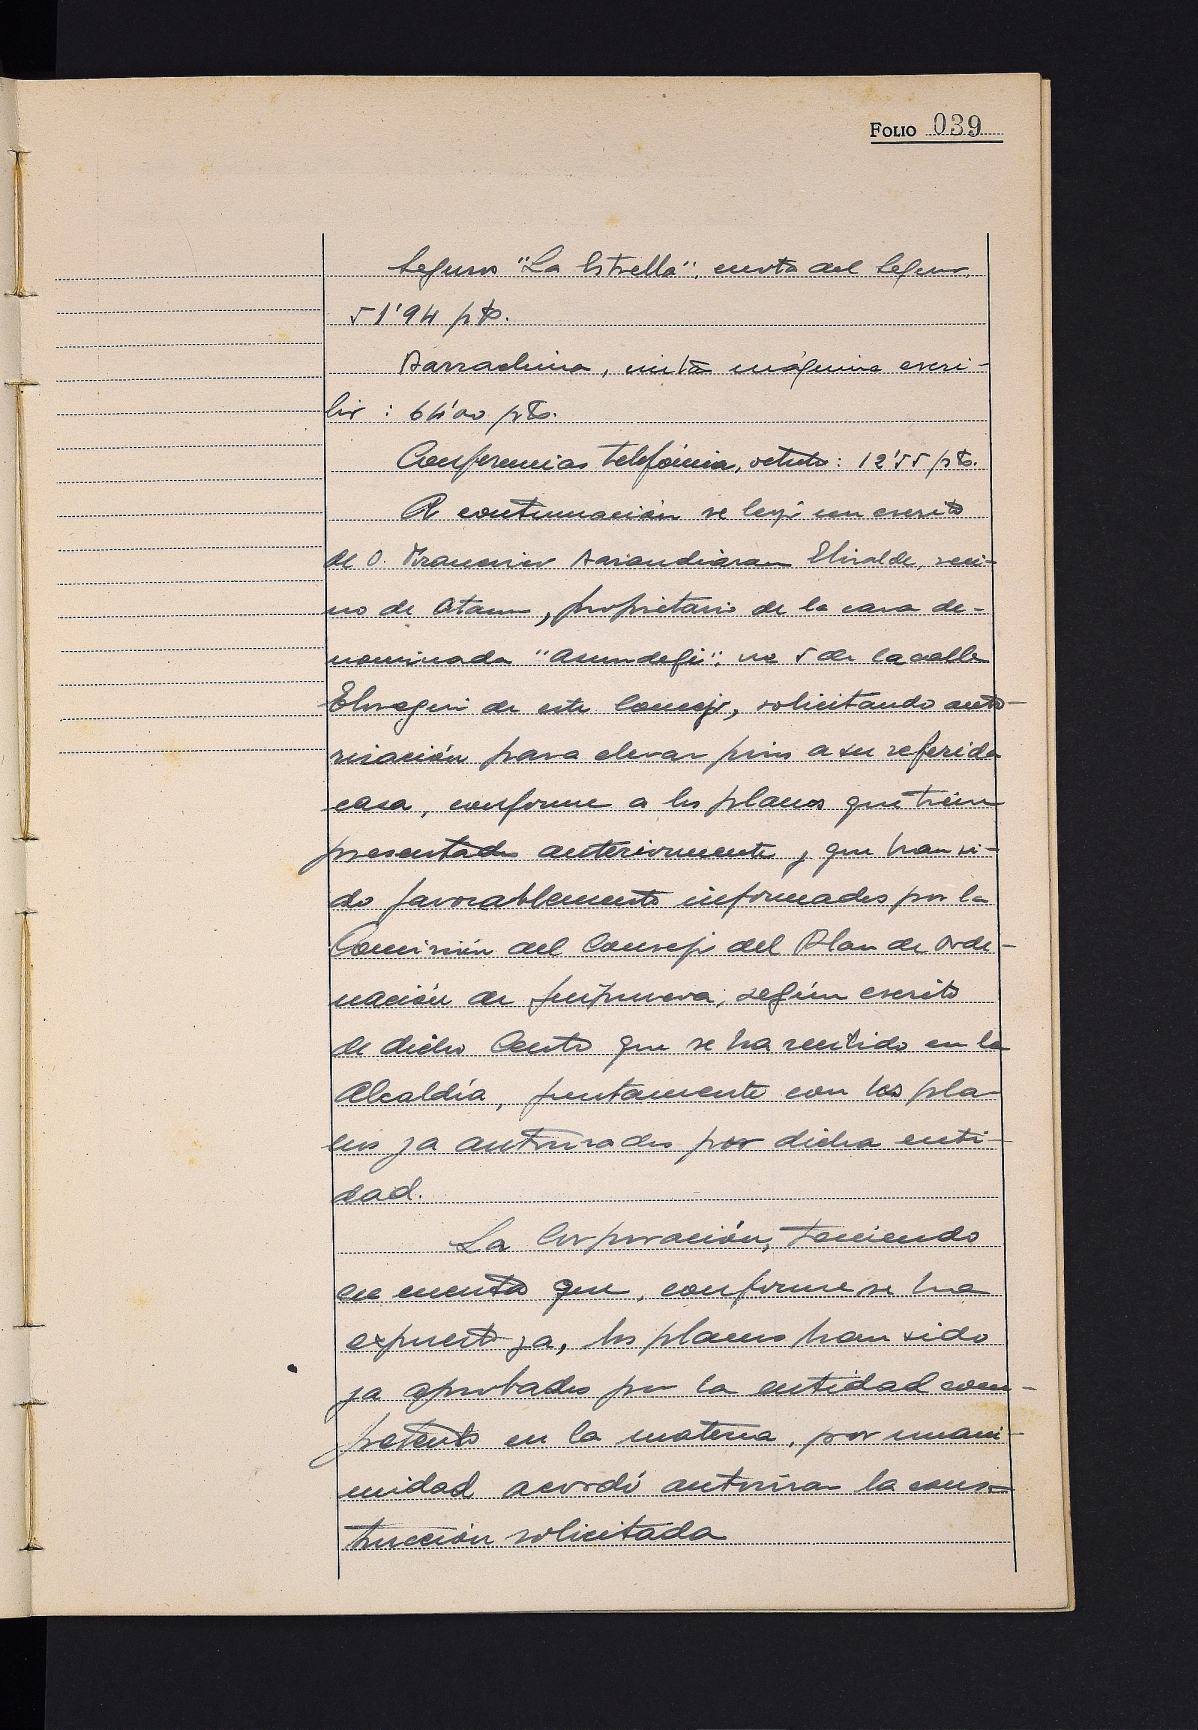 FOLIO 039
Seguros "La Estrella", cuota del Seguro,
51'94 pts.
Barrachina, cinta máquina escri-
bir : 64'00 pts.
Conferencias telefónica, octubre: 12'55 pts.
A continuación se leyó un escrito
de D. Francisco Barandiaran Elizalde, veci-
no de Ataun, propietario de la casa de-
nominada "Asundegi", no 5 de la calle
Elizegui de este Concejo, solicitando auto-
rización para elevar piso a su referida
casa, conforme a los planos que tiene
presentados anteriormente, y que han si-
do favorablemente informados por la
Comisión del Consejo del Plan de Orde-
nación de Guipuzcoa, según escrito
de dicho Centro que se ha recibido en la
Alcaldía, juntamente con los pla-
nos ya autorizados por dicha enti-
dad.
La Corporación, teniendo
en cuenta que, conforme se ha
expuesto ya, los planos han sido
ya aprobados por la entidad com-
petente en la materia, por unani-
midad acordó autorizar la cons-
trucción solicitada